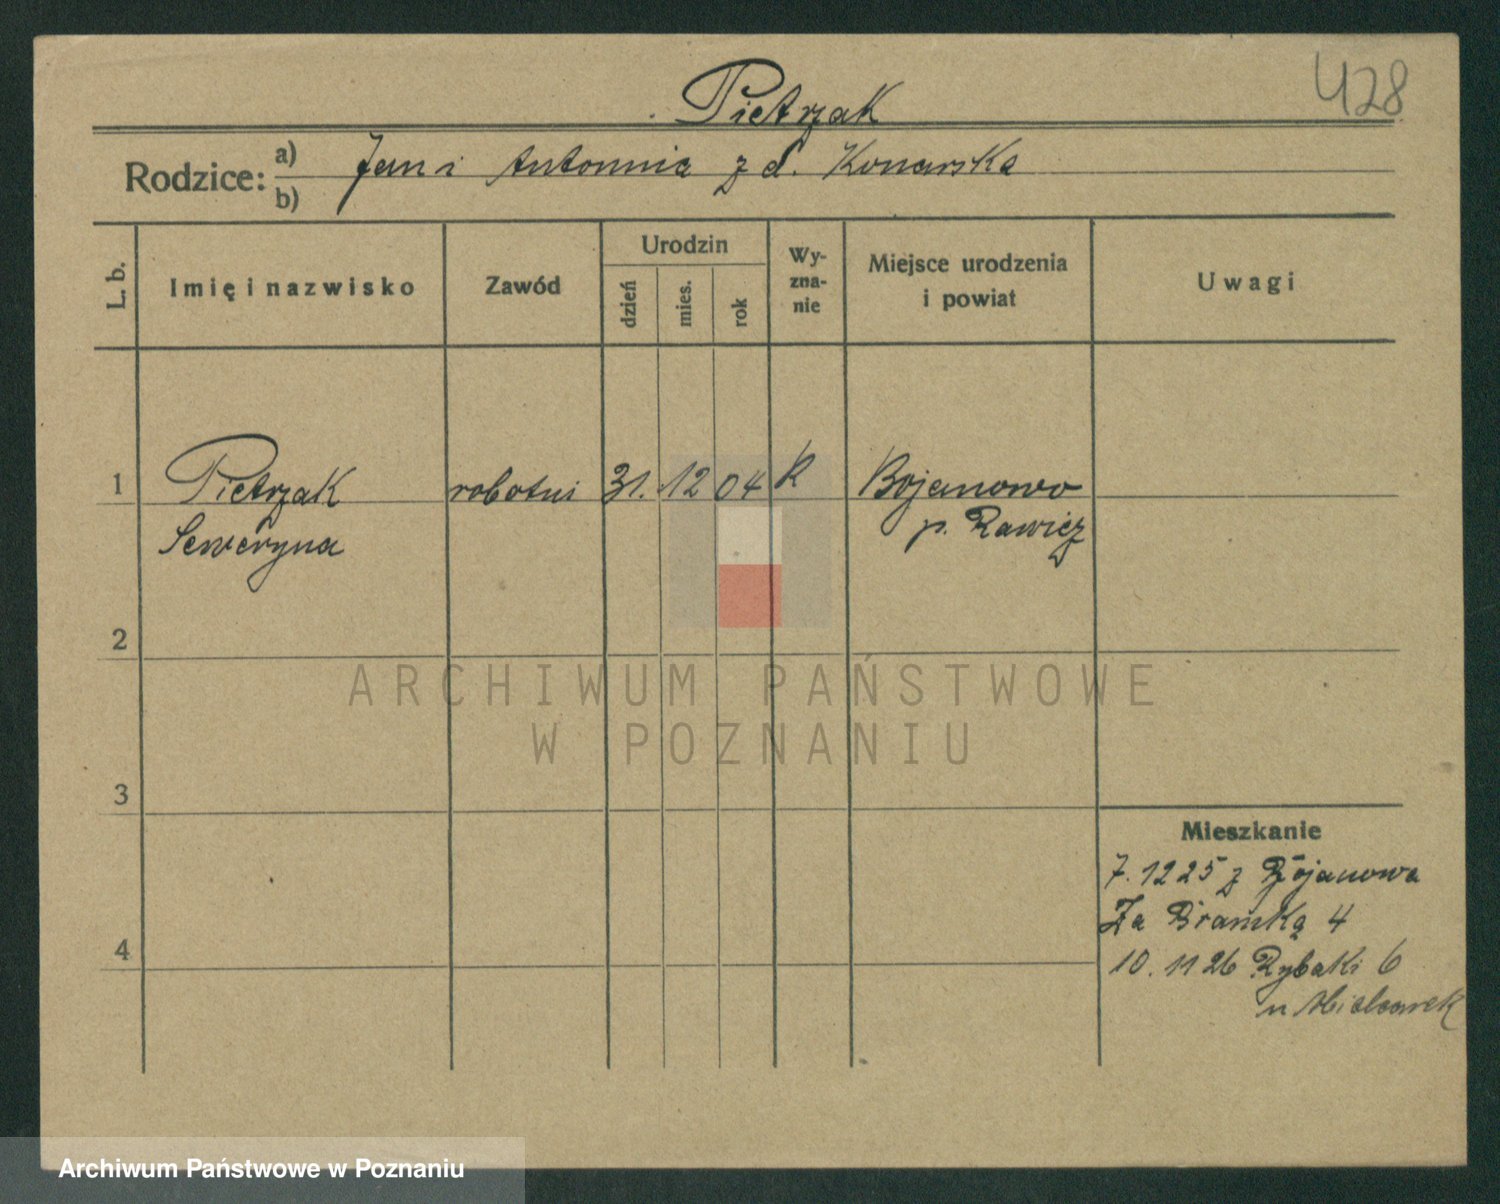 428
Pietrzak
Rodzice: a) b)
Jan i Antonnia z d. Konarska
L. b.
Imię i nazwisko
Zawód
Urodzin
dzień
mies.
rok
Wy-
zna-
nie
Miejsce urodzenia
i powiat
Uwagi
1 Pietrzak robotni 31. 12 04 K Bojanowo
Seweryna p. Rawicz
2
3
4
ARCHIWUM PAŃSTWOWE
W POZNANIU
Mieszkanie
7. 12 25 z Bojanowa
Za Bramką 4
10. 11 26 Rybaki 6
u Mielcarek
Archiwum Państwowe w Poznaniu